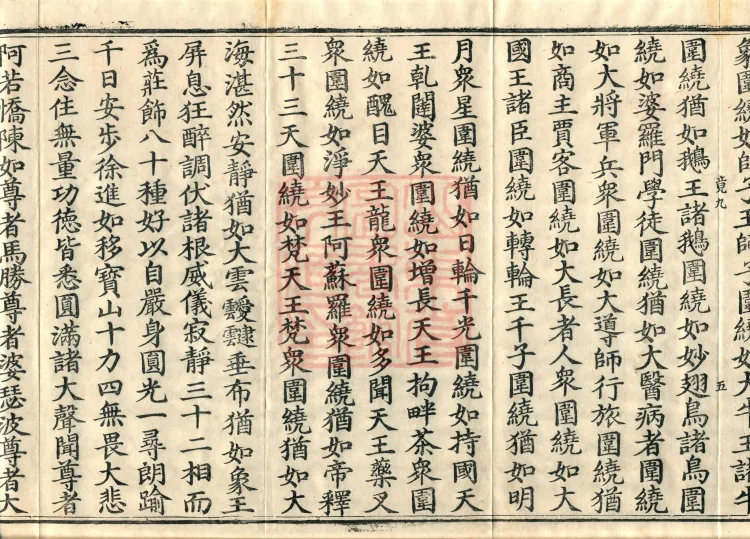 象圍繞如師子王師子圍繞如大牛王諸牛
竟九 五
圍繞猶如鵝王諸鵝圍繞如妙翅鳥諸鳥圍
繞如婆羅門學徒圍繞猶如大醫病者圍繞
如大將軍兵衆圍繞如大導師行旅圍繞猶
如商主賈客圍繞如大長者人衆圍繞如大
國王諸臣圍繞如轉輪王千子圍繞猶如明
月衆星圍繞猶如日輪千光圍繞如持國天
王乹闥婆衆圍繞如增長天王拘畔荼衆圍
繞如醜目天王龍衆圍繞如多聞天王藥叉
衆圍繞如淨妙王阿蘇羅衆圍繞猶如帝釋
三十三天圍繞如梵天王梵衆圍繞猶如大
海湛然安靜猶如大雲靉靆垂布猶如象王
屏息狂醉調伏諸根威儀寂靜三十二相而
爲莊飾八十種好以自嚴身圓光一尋朗踰
千日安步徐進如移寶山十力四無畏大悲
三念住無量功德皆悉圓滿諸大聲聞尊者
阿若憍陳如尊者馬勝尊者婆瑟波尊者大